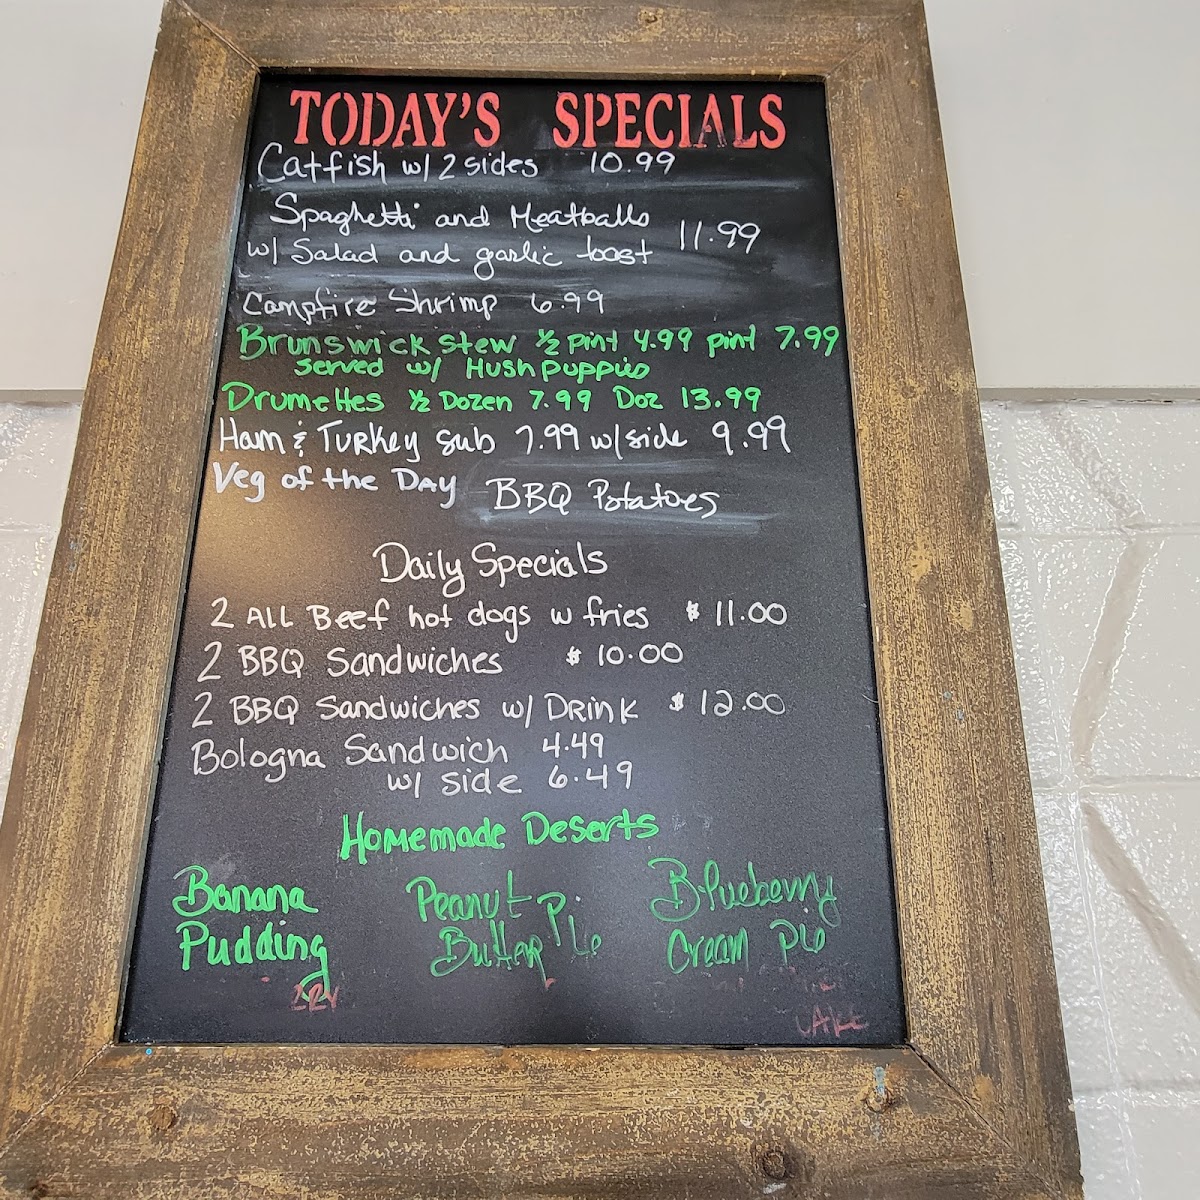 TODAY'S SPECIALS
Catfish w/ 2 sides 10.99
Spaghetti and Meatballs 11.99
w/ Salad and garlic toast
Campfire Shrimp 6.99
Brunswick stew ½ pint 4.99 pint 7.99
served w/ Hushpuppies
Drumettes ½ Dozen 7.99 Doz 13.99
Ham & Turkey sub 7.99 w/ side 9.99
Veg of the Day BBQ Potatoes
Daily Specials
2 ALL Beef hot dogs w fries $ 11.00
2 BBQ Sandwiches $ 10.00
2 BBQ Sandwiches w/ Drink $ 12.00
Bologna Sandwich 4.49
w/ side 6.49
Homemade Deserts
Banana Pudding
Peanut Butter Pie
Blueberry Cream Pie
CAKE